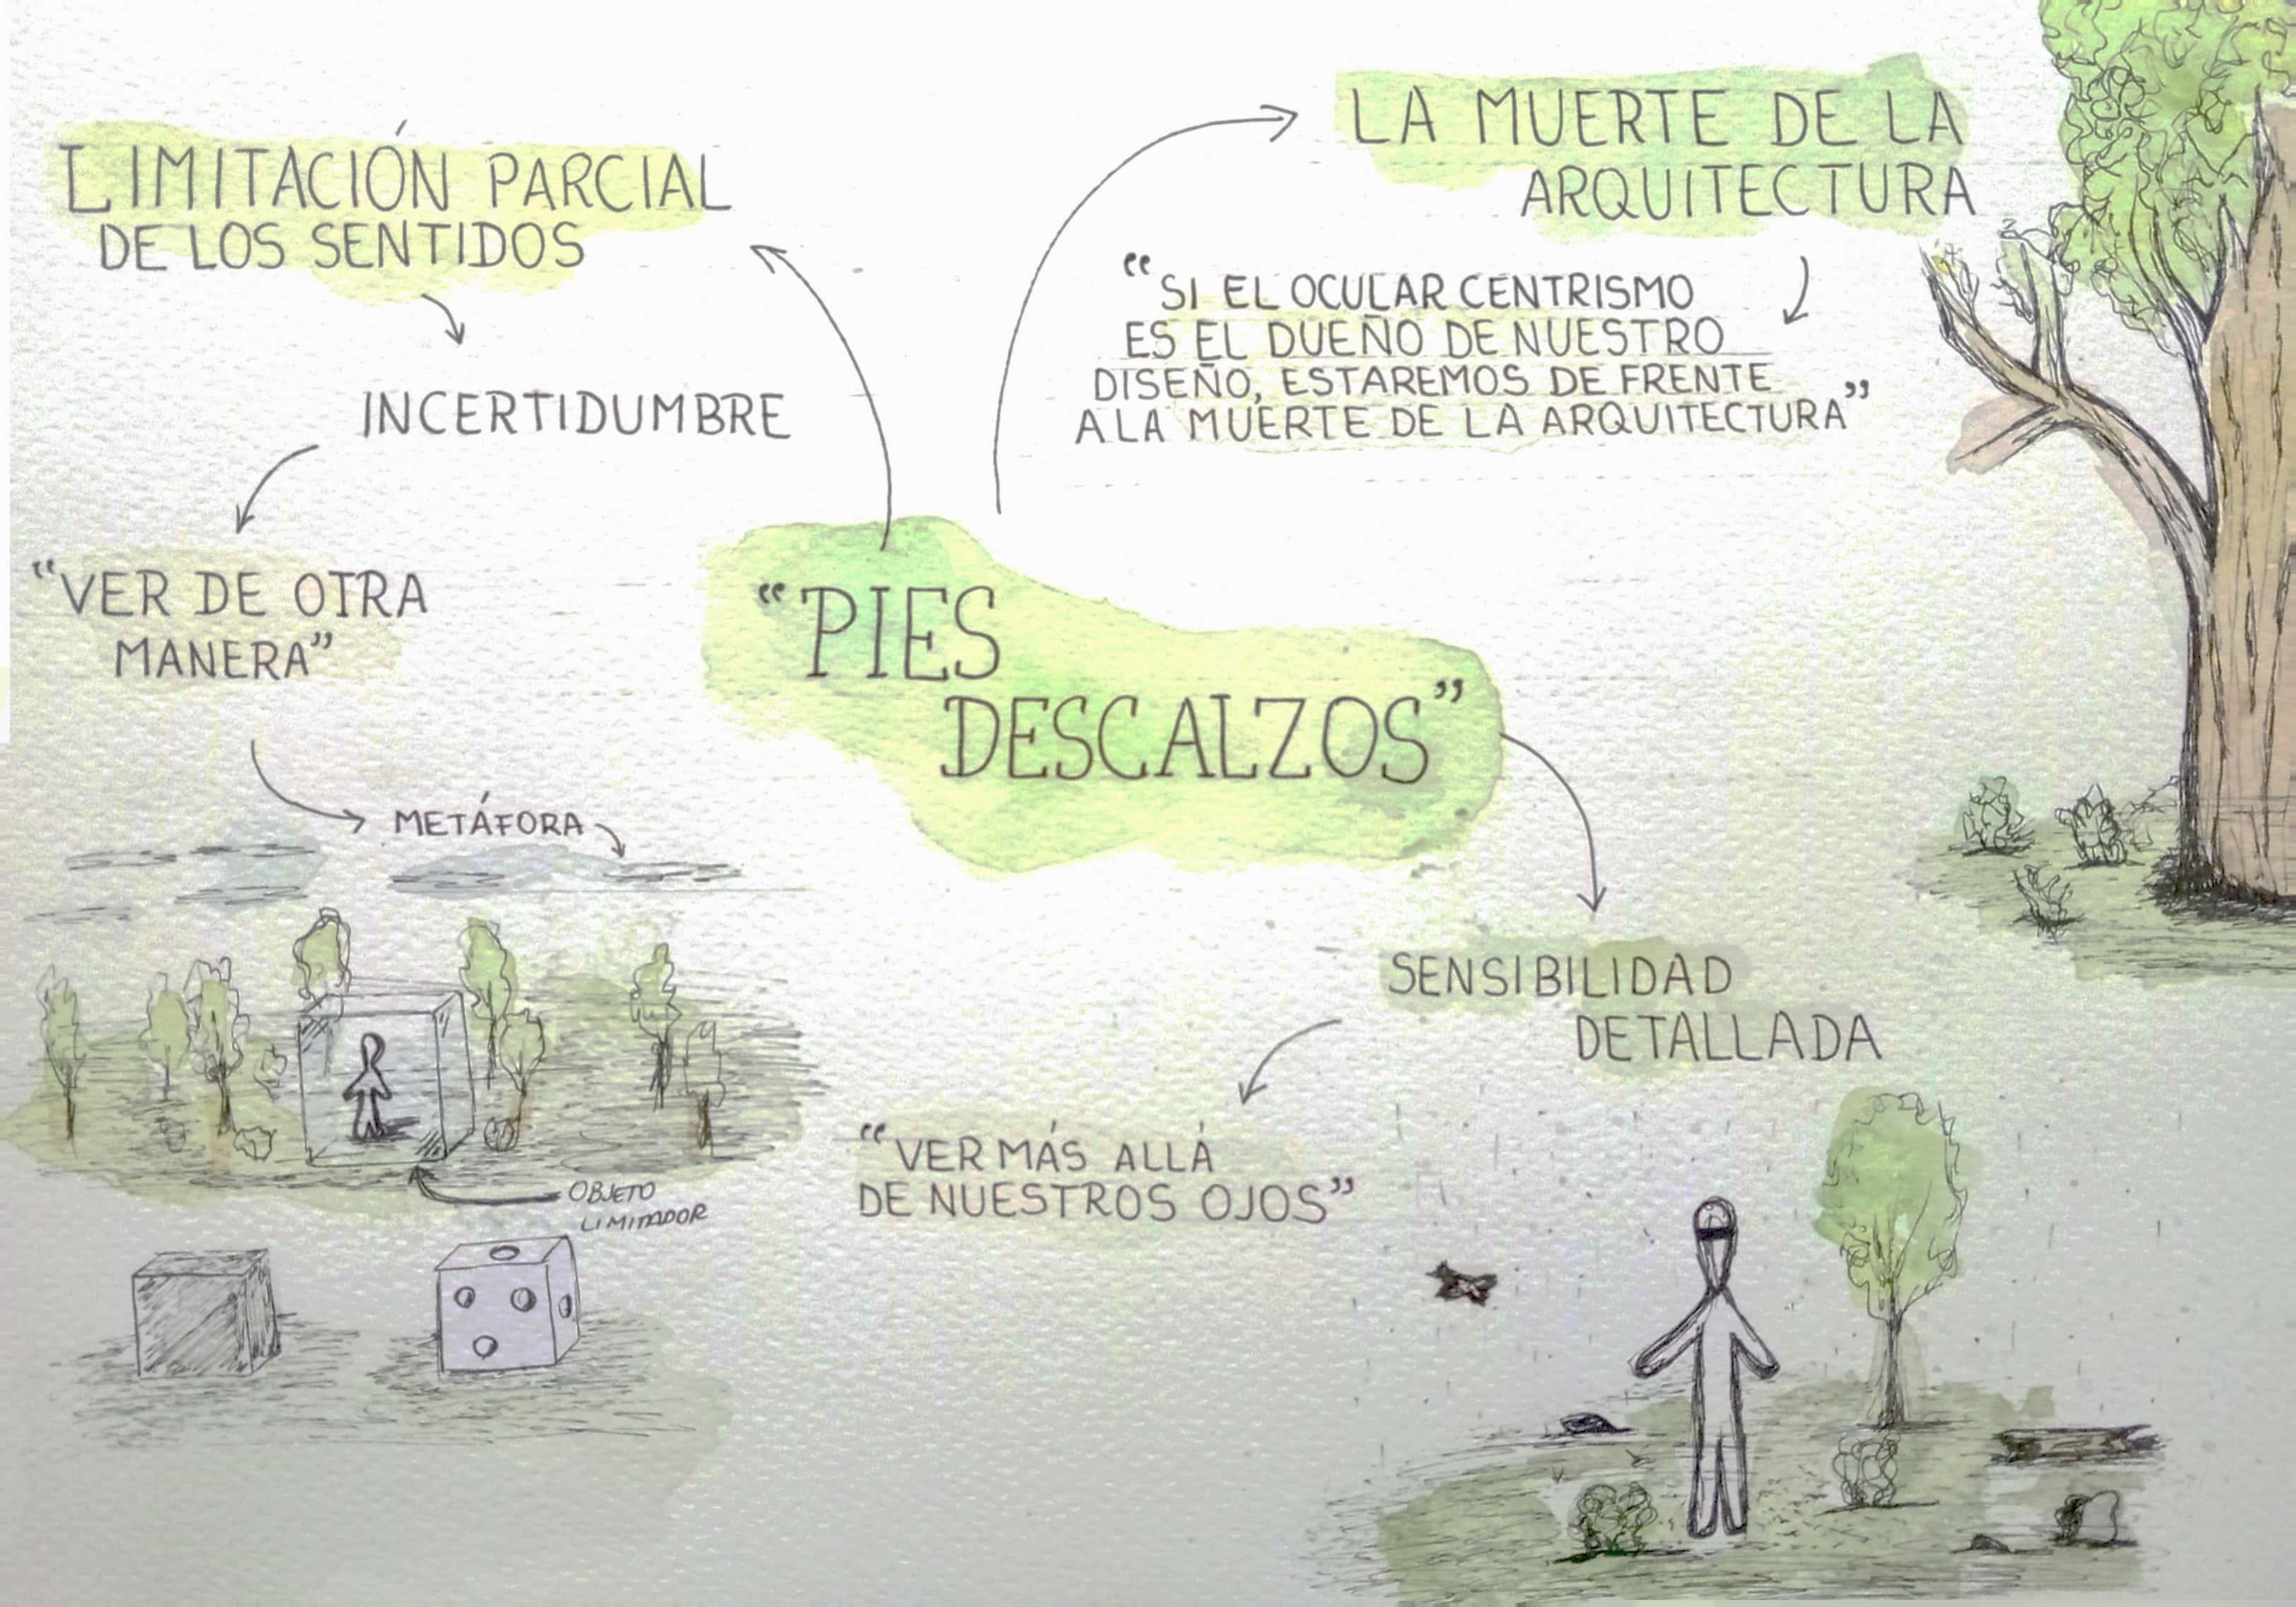 LIMITACIÓN PARCIAL
DE LOS SENTIDOS
INCERTIDUMBRE
“VER DE OTRA
MANERA”
METÁFORA
OBJETO
LIMITADOR
LA MUERTE DE LA
ARQUITECTURA
“SI EL OCULAR CENTRISMO
ES EL DUEÑO DE NUESTRO
DISEÑO, ESTAREMOS DE FRENTE
A LA MUERTE DE LA ARQUITECTURA”
“PIES
DESCALZOS”
SENSIBILIDAD
DETALLADA
“VER MÁS ALLÁ
DE NUESTROS OJOS”